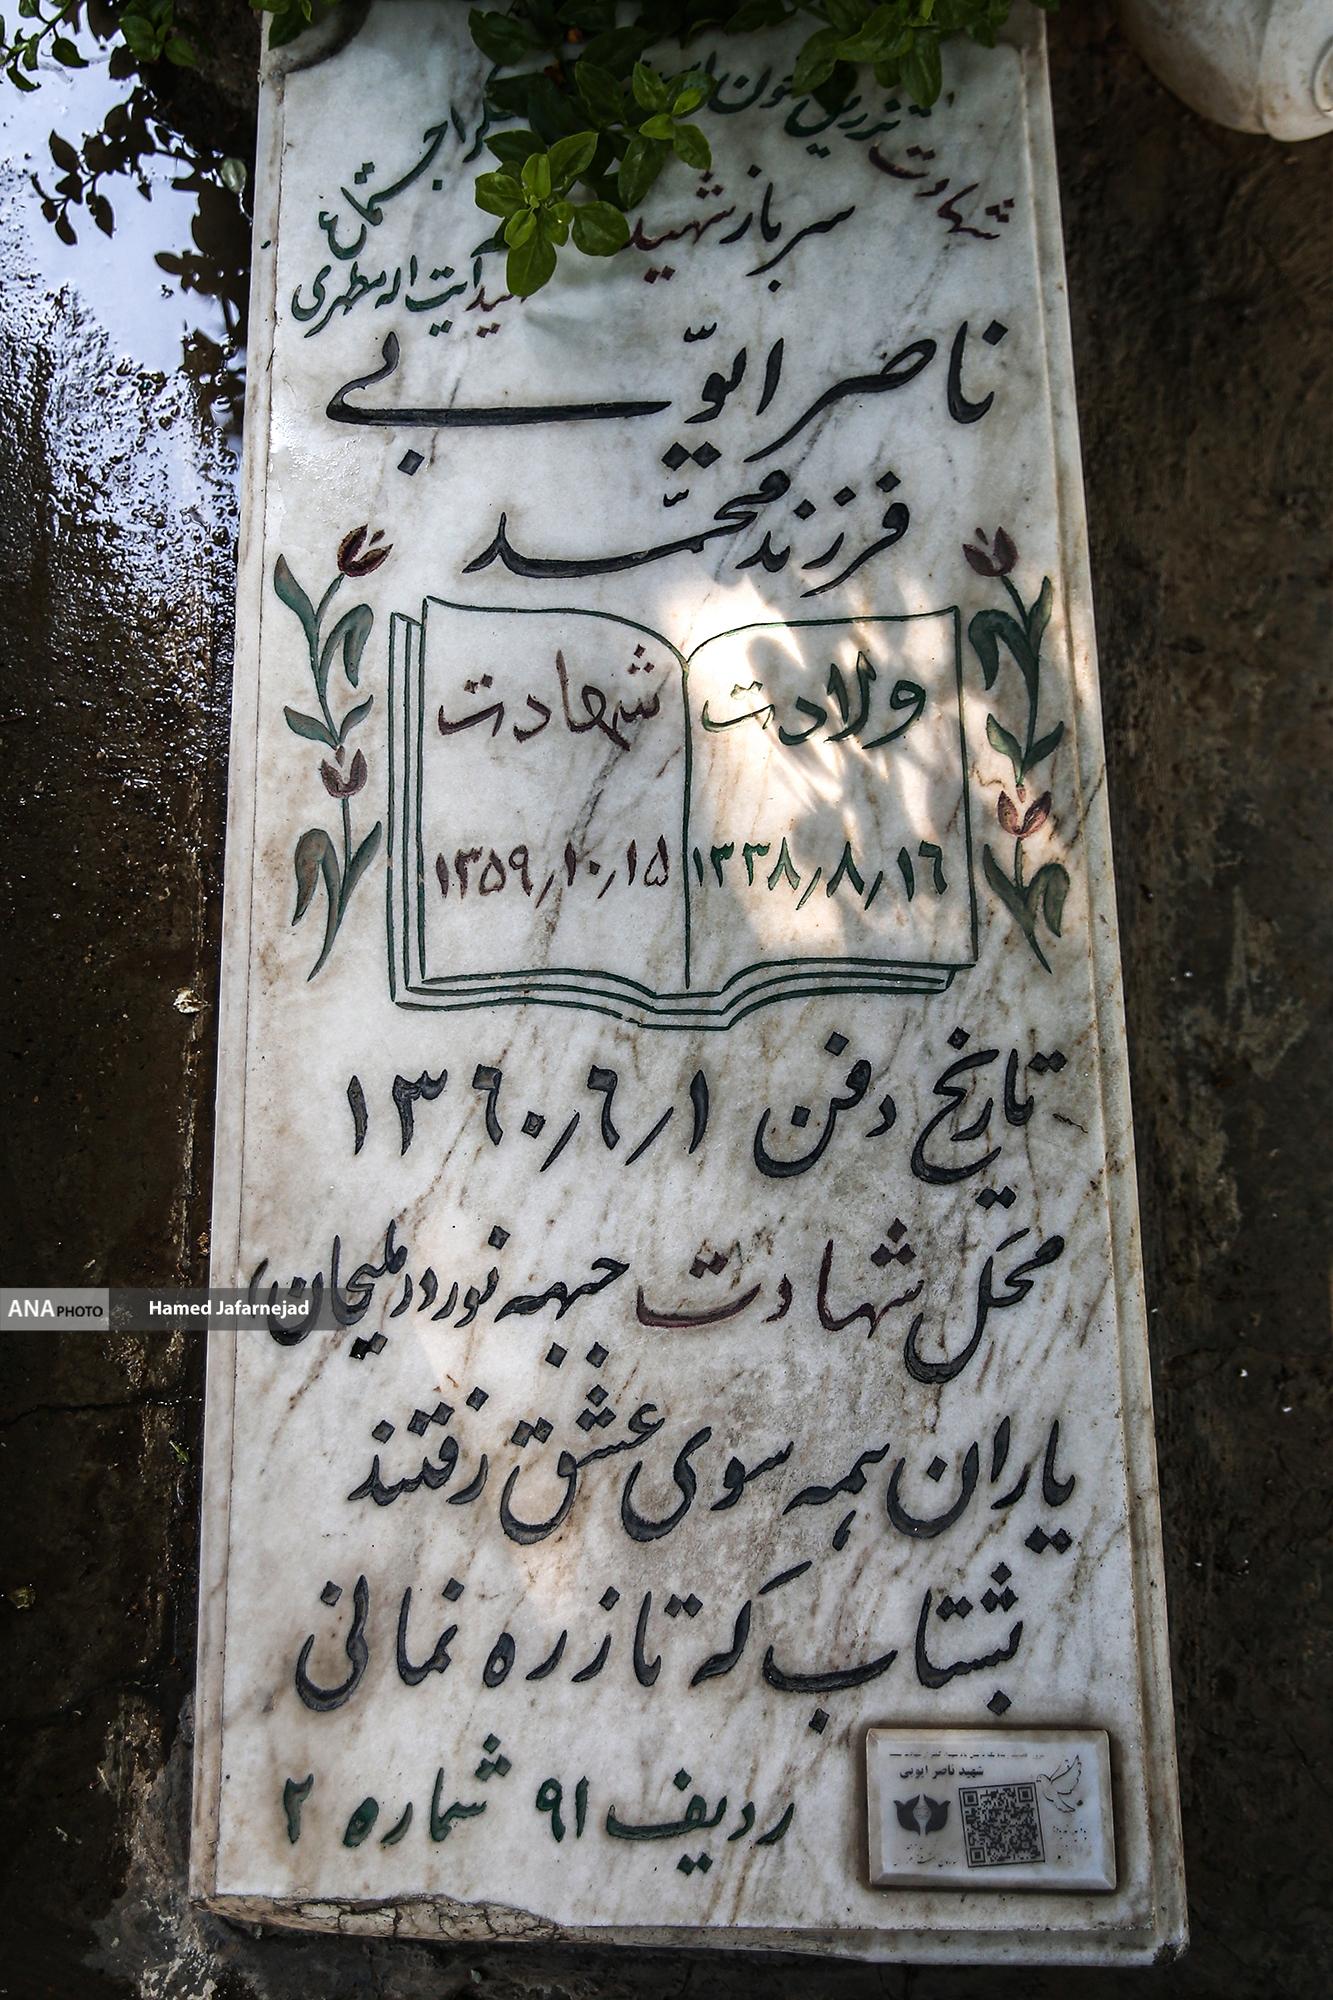 شهادت تزریق خون است اجتماع
سرباز شهید
شهید آیت اله مطهری
ناصر ایوّبی
فرزند محمّد
ولادت شهادت
۱۳۳۸٫۸٫۱۶ ۱۳۵۹٫۱۰٫۱۵
تاریخ دفن ۱۳۶۰٫۶٫۱
محَل شهادت جبهه نورد در ملیجان)
یاران همه سوی عشق رفتند
بشتاب که تا ز ره نمانی
ردیف ۹۱ شماره ۲
شهید ناصر ایوبی
ANA PHOTO Hamed Jafarnejad